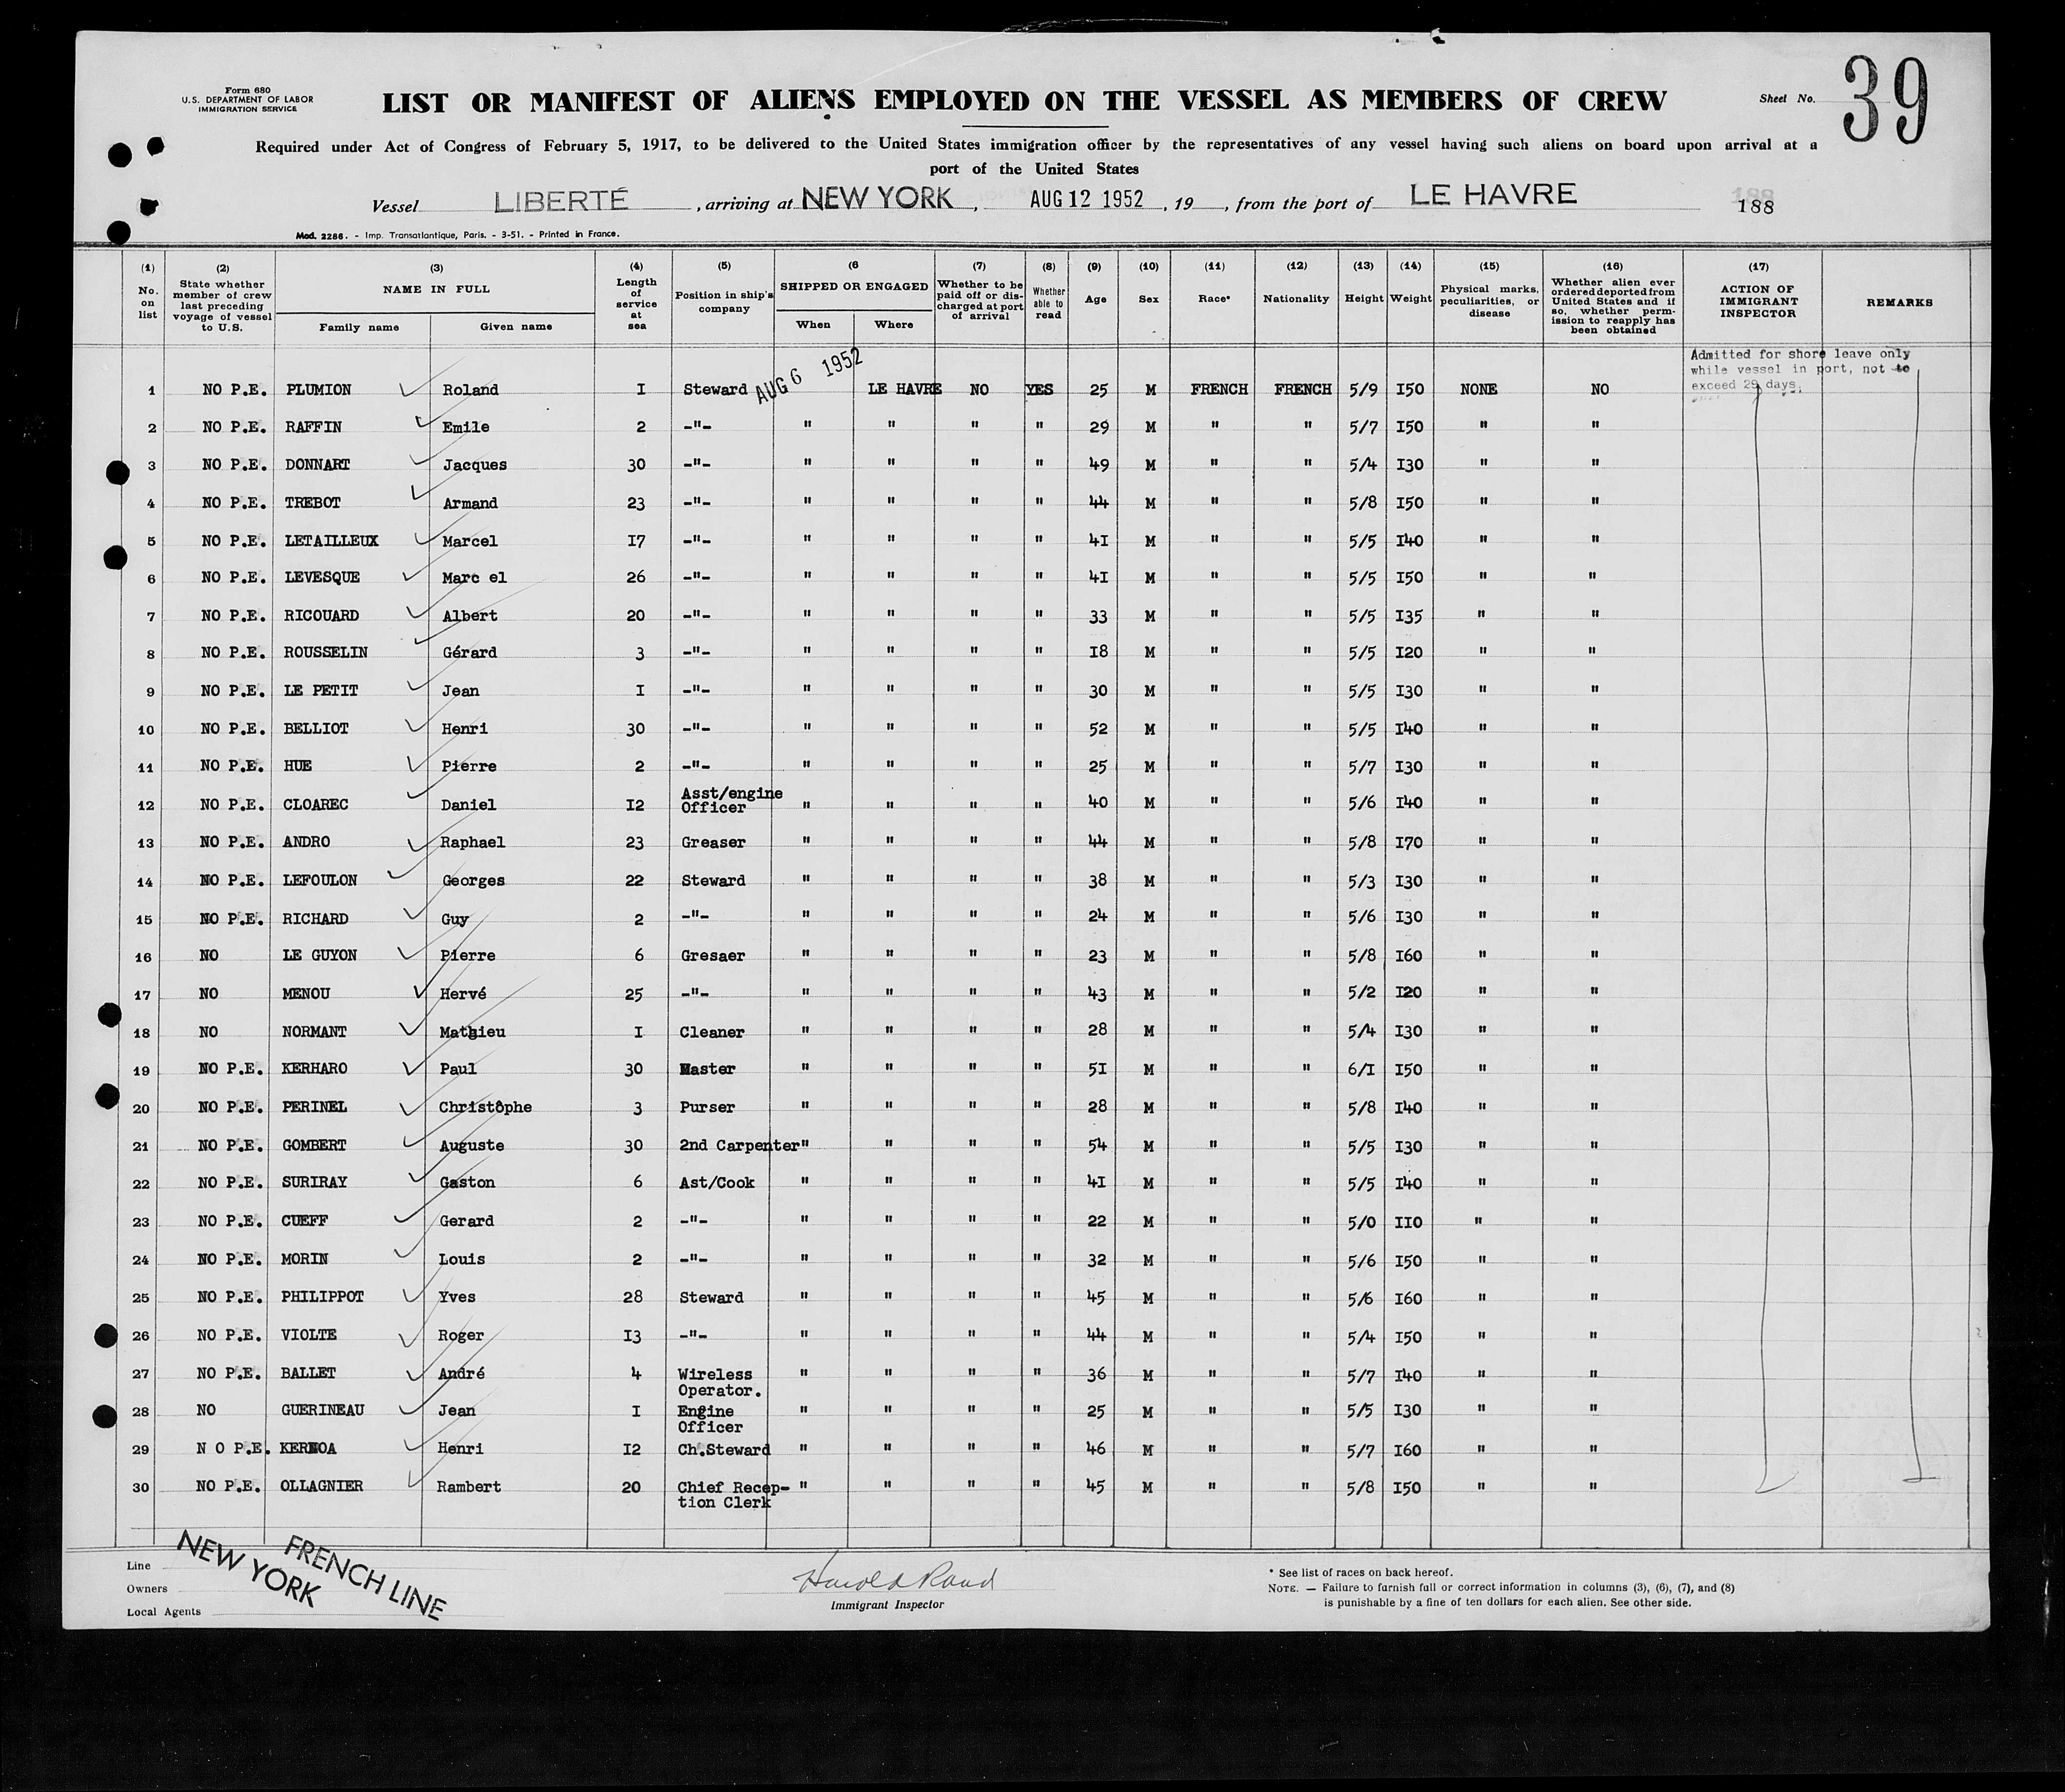 Form 680
U.S. DEPARTMENT OF LABOR
IMMIGRATION SERVICE
LIST OR MANIFEST OF ALIENS EMPLOYED ON THE VESSEL AS MEMBERS OF CREW
Sheet No. 39
Required under Act of Congress of February 5, 1917, to be delivered to the United States immigration officer by the representatives of any vessel having such aliens on board upon arrival at a
port of the United States
Vessel LIBERTÉ , arriving at NEW YORK , AUG 12 1952 , 19 , from the port of LE HAVRE 188
188
Mod. 2286. - Imp. Transatlantique, Paris. - 3-51. - Printed in France.
(1) No. on list
(2) State whether member of crew last preceding voyage of vessel to U.S.
(3) NAME IN FULL Family name Given name
(4) Length of service at sea
(5) Position in ship's company
(6 SHIPPED OR ENGAGED When Where
(7) Whether to be paid off or dis-charged at port of arrival
(8) Whether able to read
(9) Age
(10) Sex
(11) Race*
(12) Nationality
(13) Height
(14) Weight
(15) Physical marks, peculiarities, or disease
(16) Whether alien ever ordered deported from United States and if so, whether perm-ission to reapply has been obtained
(17) ACTION OF IMMIGRANT INSPECTOR
REMARKS
Admitted for shore leave only
while vessel in port, not to
exceed 29 days.
1 NO P.E. PLUMION Roland I Steward AUG 6 1952 LE HAVRE NO YES 25 M FRENCH FRENCH 5/9 I50 NONE NO
2 NO P.E. RAFFIN Emile 2 -"- " " " " 29 M " " 5/7 I50 " "
3 NO P.E. DONNART Jacques 30 -"- " " " " 49 M " " 5/4 I30 " "
4 NO P.E. TREBOT Armand 23 -"- " " " " 44 M " " 5/8 I50 " "
5 NO P.E. LETAILLEUX Marcel I7 -"- " " " " 4I M " " 5/5 I40 " "
6 NO P.E. LEVESQUE Marc el 26 -"- " " " " 4I M " " 5/5 I50 " "
7 NO P.E. RICOUARD Albert 20 -"- " " " " 33 M " " 5/5 I35 " "
8 NO P.E. ROUSSELIN Gérard 3 -"- " " " " I8 M " " 5/5 I20 " "
9 NO P.E. LE PETIT Jean I -"- " " " " 30 M " " 5/5 I30 " "
10 NO P.E. BELLIOT Henri 30 -"- " " " " 52 M " " 5/5 I40 " "
11 NO P.E. HUE Pierre 2 -"- " " " " 25 M " " 5/7 I30 " "
12 NO P.E. CLOAREC Daniel I2 Asst/engine Officer " " " " 40 M " " 5/6 I40 " "
13 NO P.E. ANDRO Raphael 23 Greaser " " " " 44 M " " 5/8 I70 " "
14 NO P.E. LEFOULON Georges 22 Steward " " " " 38 M " " 5/3 I30 " "
15 NO P.E. RICHARD Guy 2 -"- " " " " 24 M " " 5/6 I30 " "
16 NO LE GUYON Pierre 6 Gresaer " " " " 23 M " " 5/8 I60 " "
17 NO MENOU Hervé 25 -"- " " " " 43 M " " 5/2 I20 " "
18 NO NORMANT Mathieu I Cleaner " " " " 28 M " " 5/4 I30 " "
19 NO P.E. KERHARO Paul 30 Master " " " " 5I M " " 6/I I50 " "
20 NO P.E. PERINEL Christôphe 3 Purser " " " " 28 M " " 5/8 I40 " "
21 NO P.E. GOMBERT Auguste 30 2nd Carpenter " " " " 54 M " " 5/5 I30 " "
22 NO P.E. SURIRAY Gaston 6 Ast/Cook " " " " 4I M " " 5/5 I40 " "
23 NO P.E. CUEFF Gerard 2 -"- " " " " 22 M " " 5/0 II0 " "
24 NO P.E. MORIN Louis 2 -"- " " " " 32 M " " 5/6 I50 " "
25 NO P.E. PHILIPPOT Yves 28 Steward " " " " 45 M " " 5/6 I60 " "
26 NO P.E. VIOLTE Roger I3 -"- " " " " 44 M " " 5/4 I50 " "
27 NO P.E. BALLET André 4 Wireless Operator. " " " " 36 M " " 5/7 I40 " "
28 NO GUERINEAU Jean I Engine Officer " " " " 25 M " " 5/5 I30 " "
29 N O P.E. KERNOA Henri I2 Ch.Steward " " " " 46 M " " 5/7 I60 " "
30 NO P.E. OLLAGNIER Rambert 20 Chief Recep-tion Clerk " " " " 45 M " " 5/8 I50 " "
Line
Owners
Local Agents
FRENCH LINE
NEW YORK
Harold Rand
Immigrant Inspector
* See list of races on back hereof.
NOTE. — Failure to furnish full or correct information in columns (3), (6), (7), and (8)
is punishable by a fine of ten dollars for each alien. See other side.